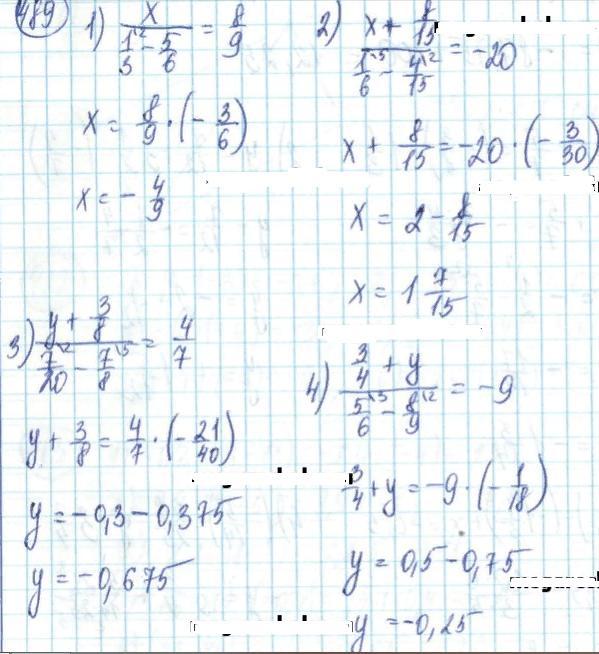 489
1) x / (1/3 \2 - 5/6) = 8/9
x = 8/9 · (- 3/6)
x = - 4/9
2) (x + 8/15) / (1/6 \5 - 4/15 \2) = -20
x + 8/15 = -20 · (- 3/30)
x = 2 - 8/15
x = 1 7/15
3) (y + 3/8) / (7/20 \2 - 7/8 \5) = 4/7
y + 3/8 = 4/7 · (- 21/40)
y = -0,3 - 0,375
y = -0,675
4) (3/4 + y) / (5/6 \3 - 8/9 \2) = -9
3/4 + y = -9 · (- 1/18)
y = 0,5 - 0,75
y = -0,25